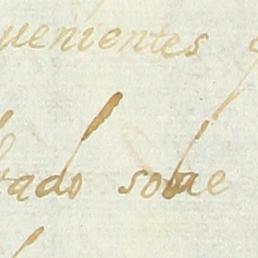 uenientes
tado sobre